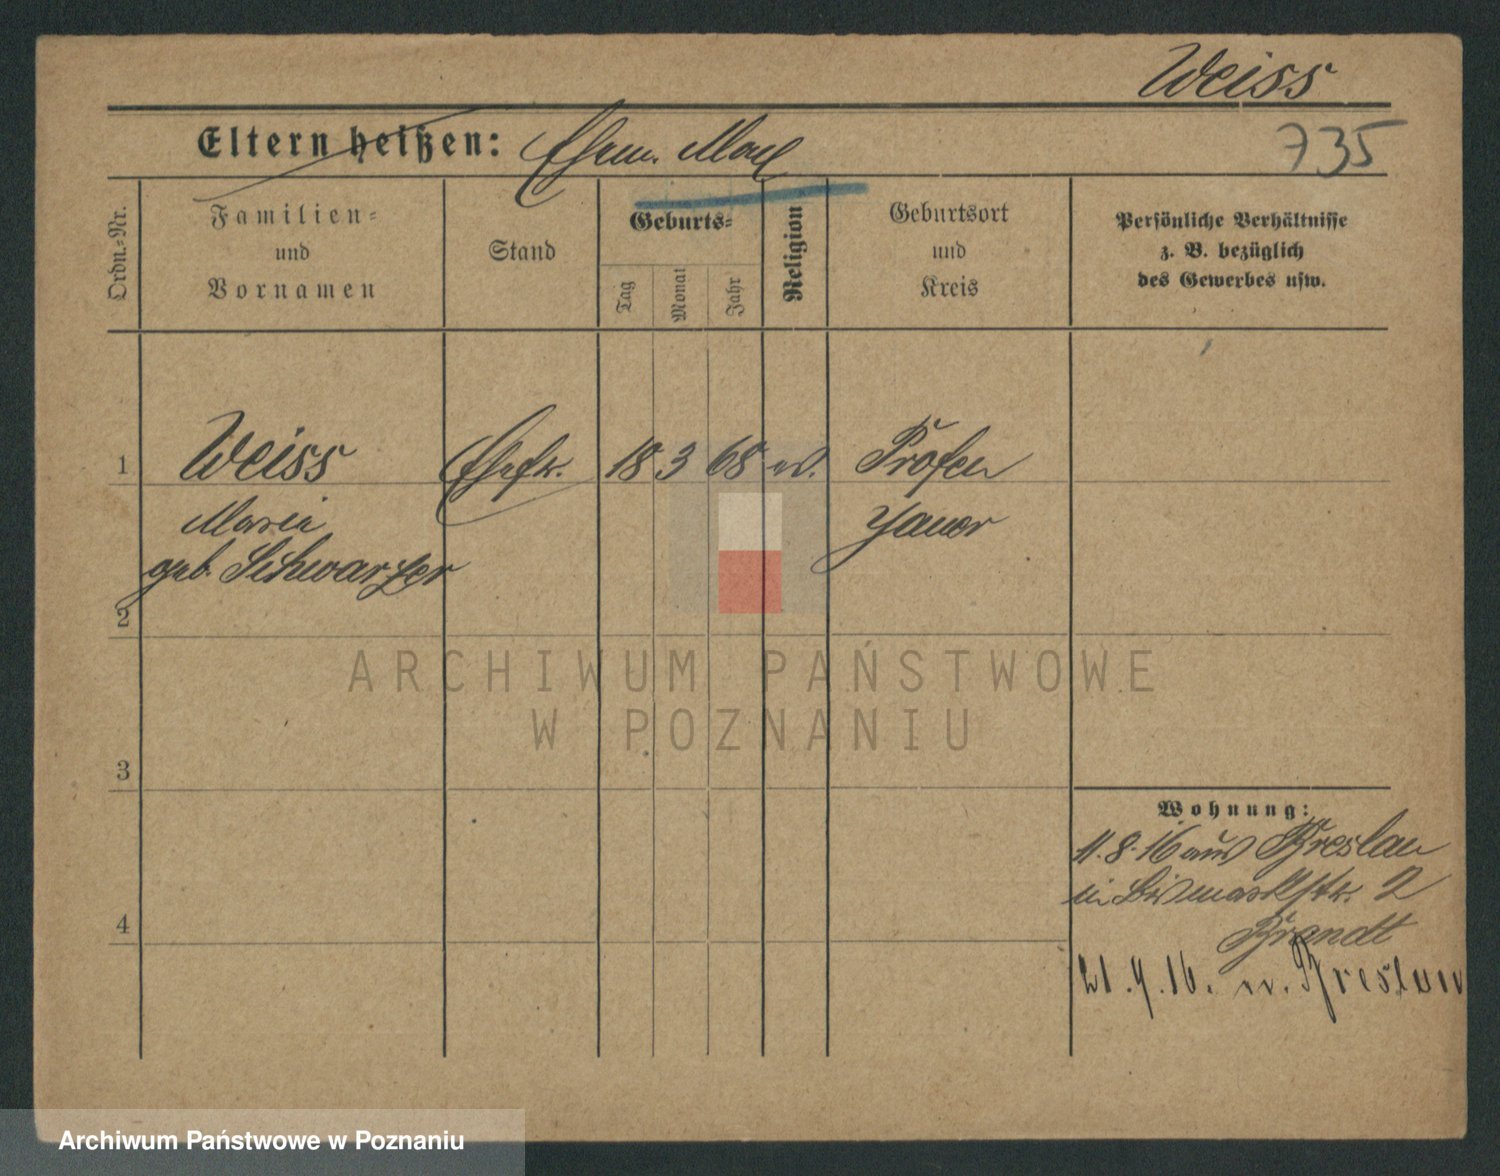 Weiss
Eltern heißen: Ehem. Max
735
Ordn.-Nr.
Familien-
und
Vornamen
Stand
Geburts-
Tag
Monat
Jahr
Religion
Geburtsort
und
Kreis
Persönliche Verhältnisse
z. B. bezüglich
des Gewerbes usw.
1 Weiss Ehefr. 18 3 68 ev. Profen
Maria Jauer
geb. Schwarzer
2
3
4
Wohnung:
11.8.16 aus Breslau
in Bismarckstr. 2
Brandt
21.9.16. n. Breslau
ARCHIWUM PAŃSTWOWE
W POZNANIU
Archiwum Państwowe w Poznaniu